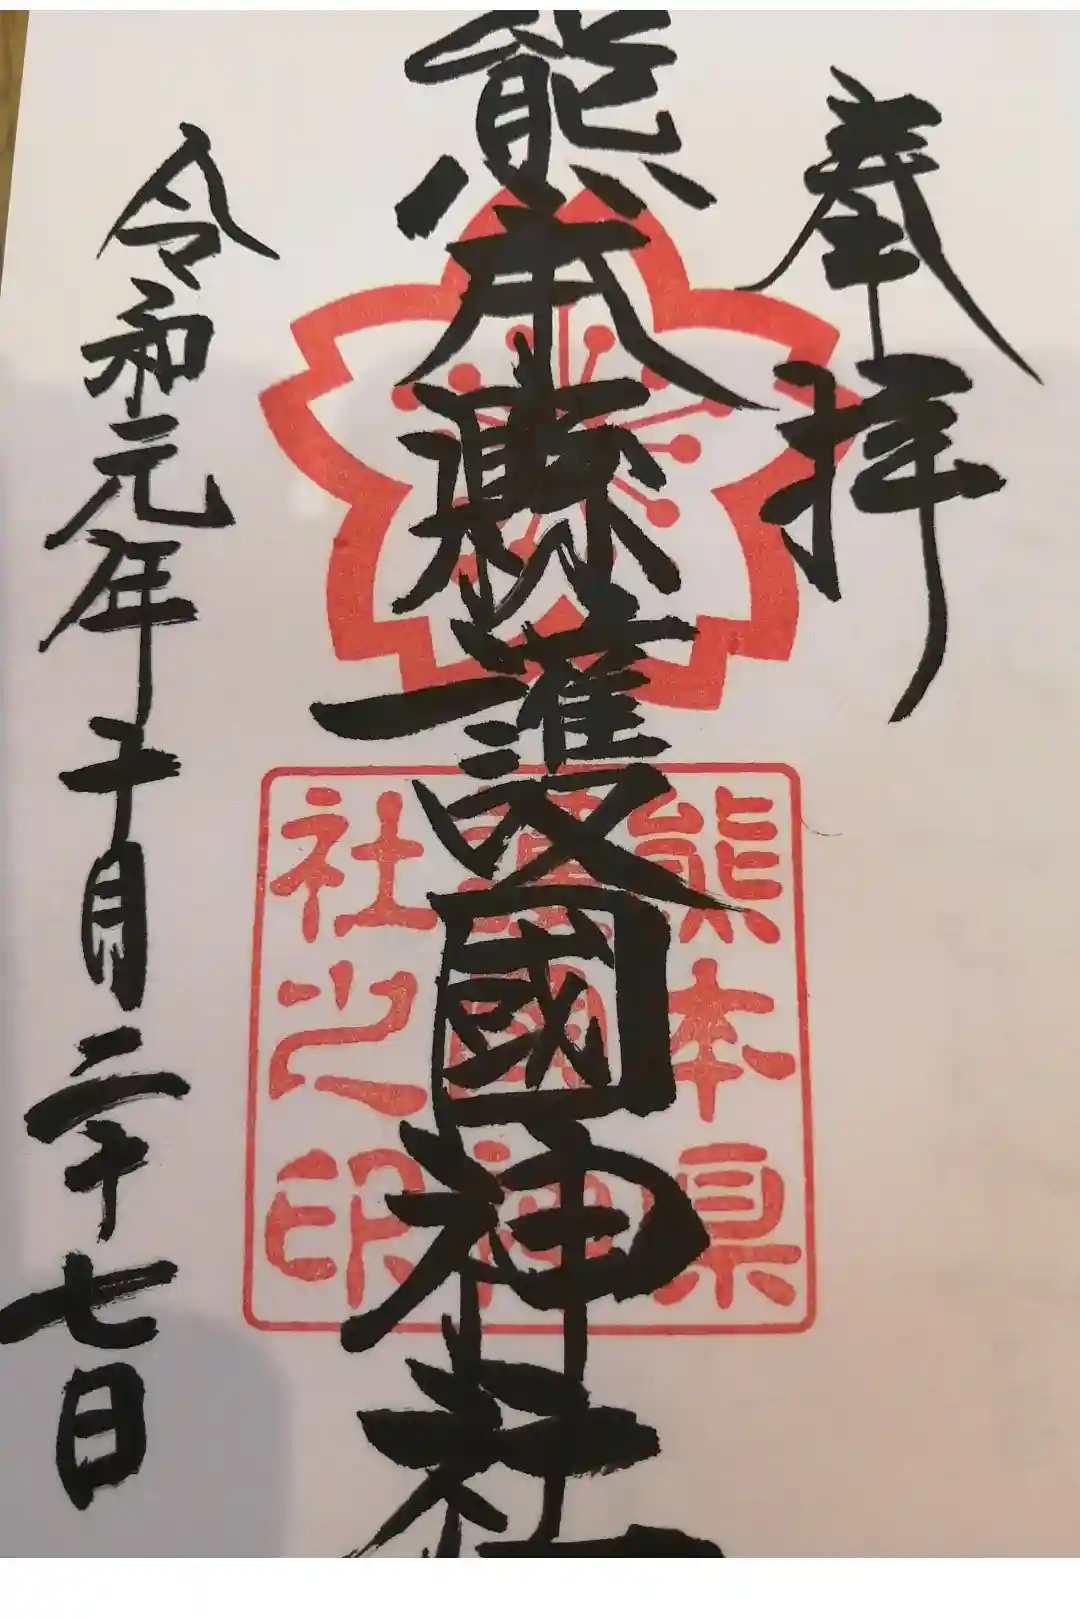 奉拝
熊本縣護國神社
令和元年十月二十七日
熊本県
護國神
社之印